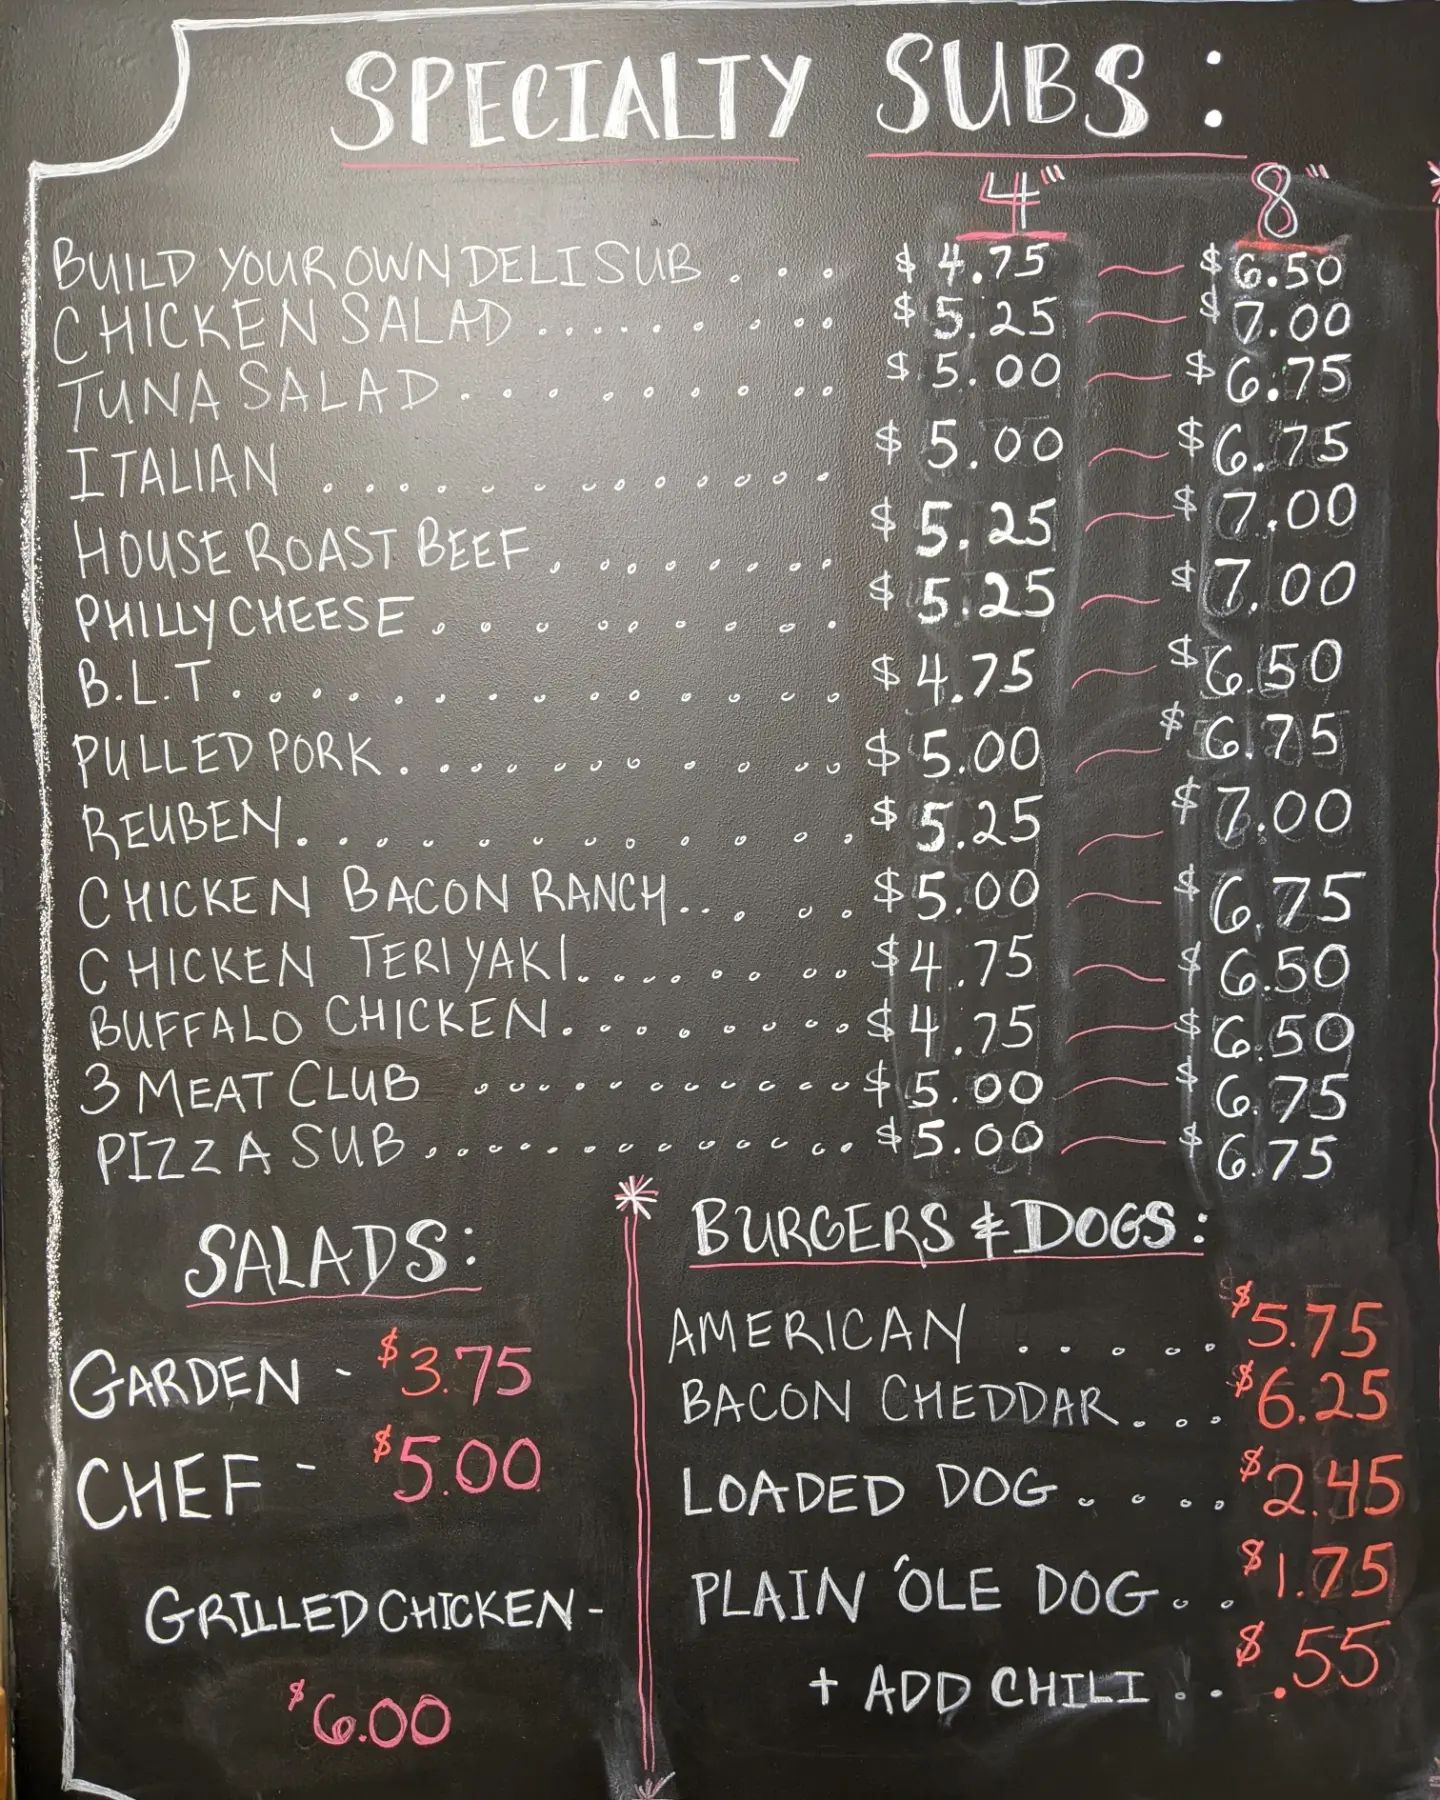 SPECIALTY SUBS:
4" 8"
BUILD YOUR OWN DELI SUB . . . $4.75 ~ $6.50
CHICKEN SALAD . . . . . . . . . . $5.25 ~ $7.00
TUNA SALAD . . . . . . . . . $5.00 ~ $6.75
ITALIAN . . . . . . . . . . . . . $5.00 ~ $6.75
HOUSE ROAST BEEF . . . . . . . . $5.25 ~ $7.00
PHILLY CHEESE . . . . . . . . . . $5.25 ~ $7.00
B.L.T . . . . . . . . . . . . . . $4.75 ~ $6.50
PULLED PORK . . . . . . . . . . . . $5.00 ~ $6.75
REUBEN . . . . . . . . . . . . $5.25 ~ $7.00
CHICKEN BACON RANCH . . . . . $5.00 ~ $6.75
CHICKEN TERIYAKI . . . . . . . . . $4.75 ~ $6.50
BUFFALO CHICKEN . . . . . . . . . $4.75 ~ $6.50
3 MEAT CLUB . . . . . . . . . . . . . $5.00 ~ $6.75
PIZZA SUB . . . . . . . . . . . . . . $5.00 ~ $6.75
SALADS:
GARDEN - $3.75
CHEF - $5.00
GRILLED CHICKEN -
$6.00
BURGERS & DOGS:
AMERICAN . . . . . $5.75
BACON CHEDDAR . . . $6.25
LOADED DOG . . . . . $2.45
PLAIN 'OLE DOG . . . $1.75
+ ADD CHILI . . $.55